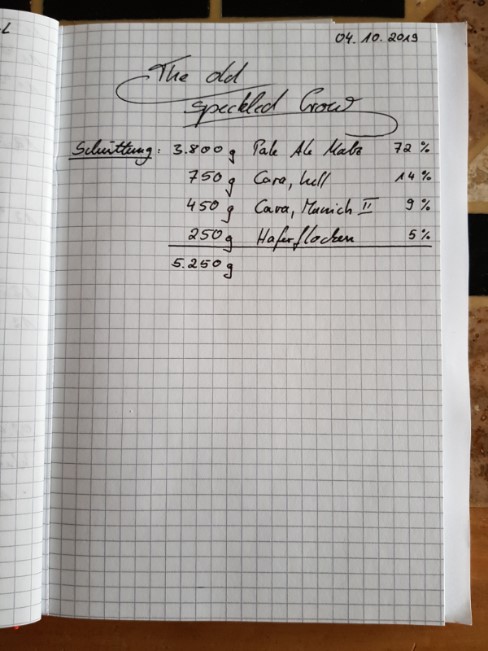 L
04.10.2019
The old
speckled Crow
Schüttung: 3.800g Pale Ale Malz 72%
750g Cara, hell 14%
450g Cara, Munich II 9%
250g Haferflocken 5%
5.250g